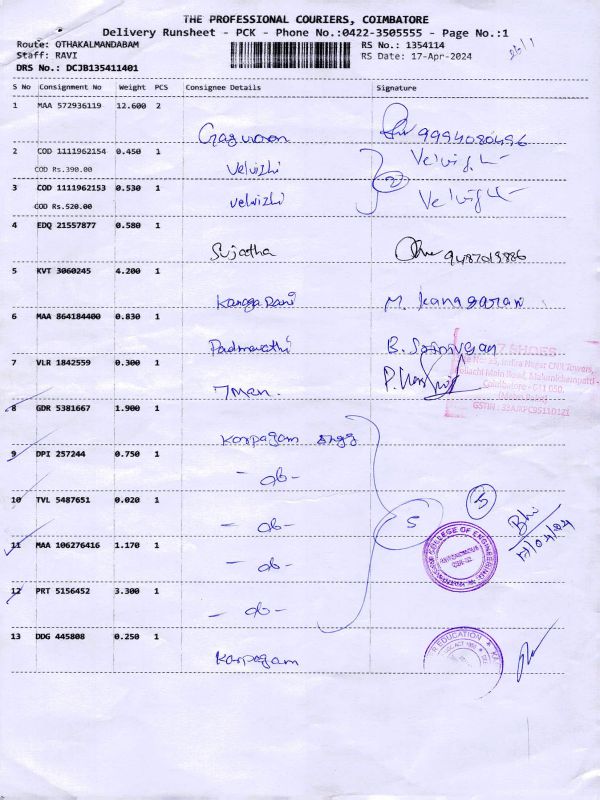 THE PROFESSIONAL COURIERS, COIMBATORE
Delivery Runsheet - PCK - Phone No.:0422-3505555 - Page No.:1
Route: OTHAKALMANDABAM
RS No.: 1354114
Staff: RAVI
RS Date: 17-Apr-2024
DRS No.: DCJB135411401
S No Consignment No Weight PCS Consignee Details Signature
1 MAA 572936119 12.600 2
9994080496
2 COD 1111962154 0.450 1
COD Rs.390.00
Velvizhi
3 COD 1111962153 0.530 1
COD Rs.520.00
velvizhi
2
4 EDQ 21557877 0.580 1
Sujatha
5 KVT 3060245 4.200 1
Kanaga Rani M. Kanagarani
6 MAA 864184400 0.830 1
Padmavathi B. Srinivasan
7 VLR 1842559 0.300 1
7 Men.
7 SHOES
Indira Nagar CNR Towers,
Pollachi Main Road, Malumichampatti -
Coimbatore - 641 050.
8 GDR 5381667 1.900 1
Karpagam engg
9 DPI 257244 0.750 1
- do -
10 TVL 5487651 0.020 1
- do -
5
5
17/04/2024
11 MAA 106276416 1.170 1
- do -
COLLEGE OF ENGINEERING
12 PRT 5156452 3.300 1
- do -
13 DDG 445808 0.250 1
Karpagam
EDUCATION